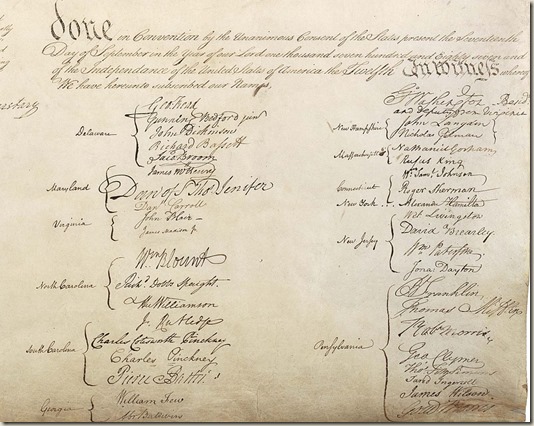 done in Convention by the Unanimous Consent of the States present the Seventeenth
Day of September in the Year of our Lord one thousand seven hundred and Eighty seven and
of the Independance of the United States of America the Twelfth In Witness whereof
We have hereunto subscribed our Names,
Delaware
Geo Read
Gunning Bedford jun
John Dickinson
Richard Bassett
Jaco Broom
Maryland
James McHenry
Dan of St Thos Jenifer
Danl Carroll
Virginia
John Blair
James Madison Jr
North Carolina
Wm Blount
Richd Dobbs Spaight
Hu Williamson
South Carolina
J. Rutledge
Charles Cotesworth Pinckney
Charles Pinckney
Pierce Butler
Georgia
William Few
Abr Baldwin
Go Washington Presidt
and deputy from Virginia
New Hampshire
John Langdon
Nicholas Gilman
Massachusetts
Nathaniel Gorham
Rufus King
Connecticut
Wm Saml Johnson
Roger Sherman
New York
Alexander Hamilton
New Jersey
Wil Livingston
David Brearley
Wm Paterson
Jona Dayton
Pensylvania
B Franklin
Thomas Mifflin
Robt Morris
Geo. Clymer
Thos FitzSimons
Jared Ingersoll
James Wilson
Gouv Morris